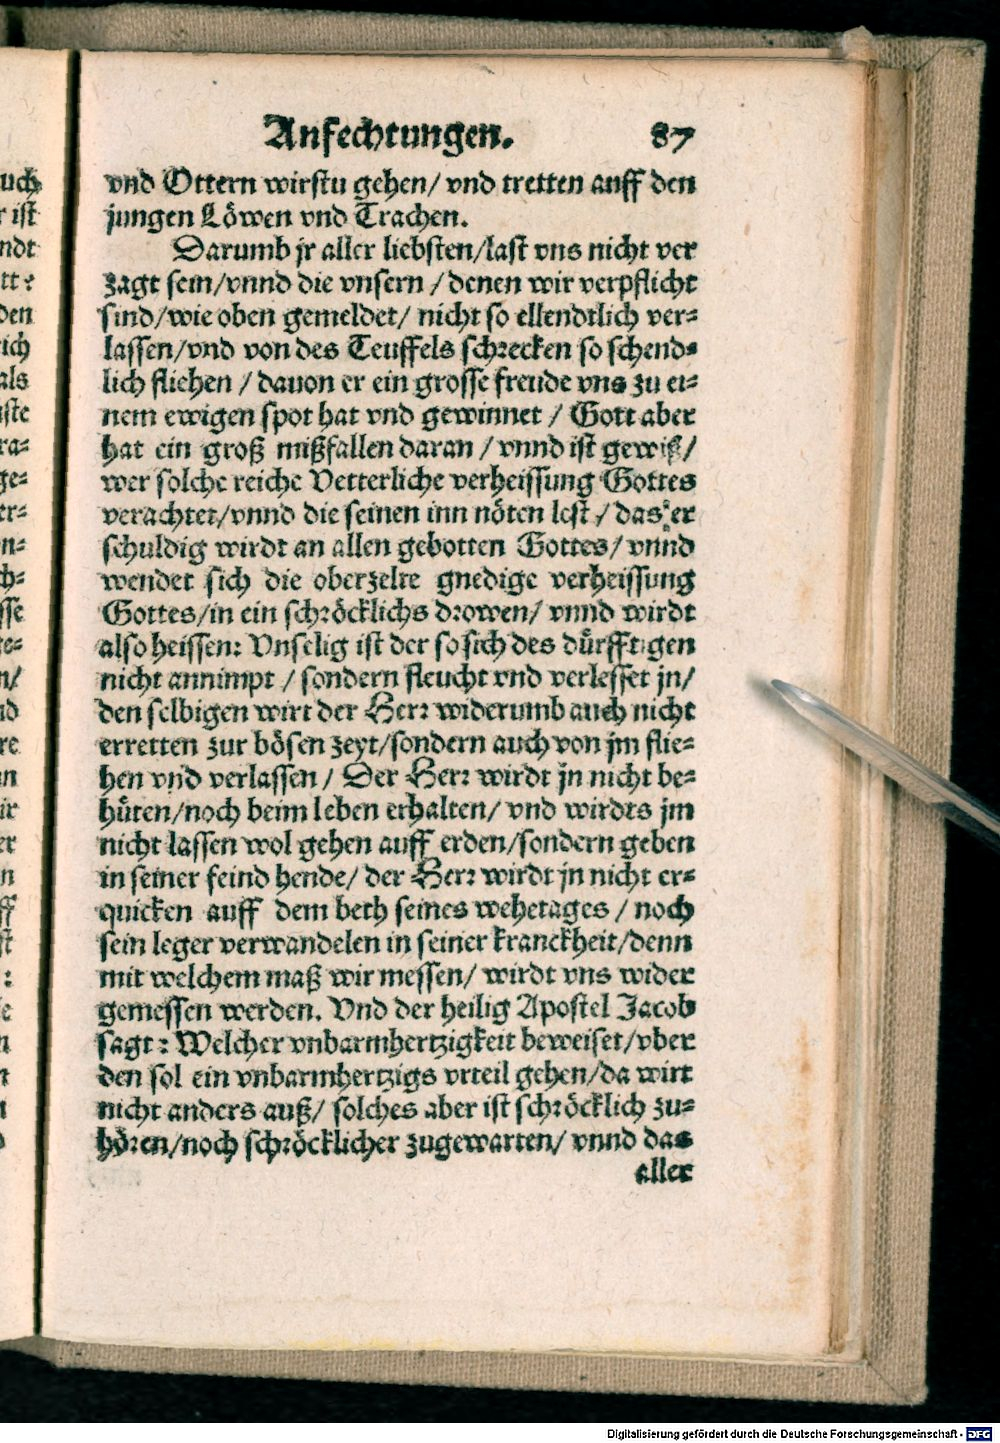 Anfechtungen. 87
vnd Ottern wirstu gehen/ vnd tretten auff den
jungen Löwen vnd Trachen.
Darumb jr aller liebsten/last vns nicht ver
zagt sein/vnnd die vnsern / denen wir verpflicht
sind/wie oben gemeldet/ nicht so ellendtlich ver-
lassen/vnd von des Teuffels schrecken so schend-
lich fliehen / dauon er ein grosse freude vns zu ei-
nem ewigen spot hat vnd gewinnet / Gott aber
hat ein groß mißfallen daran / vnnd ist gewiß/
wer solche reiche Vetterliche verheissung Gottes
verachtet/vnnd die seinen inn nöten lest / das er
schuldig wirdt an allen gebotten Gottes/ vnnd
wendet sich die oberzelte gnedige verheissung
Gottes/in ein schröcklichs drowen/ vnnd wirdt
also heissen: Vnselig ist der so sich des dürfftigen
nicht annimpt / sondern fleucht vnd verlesset jn/
den selbigen wirt der Herr widerumb auch nicht
erretten zur bösen zeyt/sondern auch von jm flie-
hen vnd verlassen / Der Herr wirdt jn nicht be-
hüten/noch beim leben erhalten/ vnd wirdts jm
nicht lassen wol gehen auff erden/sondern geben
in seiner feind hende/ der Herr wirdt jn nicht er-
quicken auff dem beth seines wehetages / noch
sein leger verwandelen in seiner kranckheit/denn
mit welchem maß wir messen/ wirdt vns wider
gemessen werden. Vnd der heilig Apostel Jacob
sagt: Welcher vnbarmhertzigkeit beweiset/vber
den sol ein vnbarmhertzigs vrteil gehen/da wirt
nicht anders auß/ solches aber ist schröcklich zu-
hören/noch schröcklicher zugewarten/ vnnd das
aller
Digitalisierung gefördert durch die Deutsche Forschungsgemeinschaft - DFG